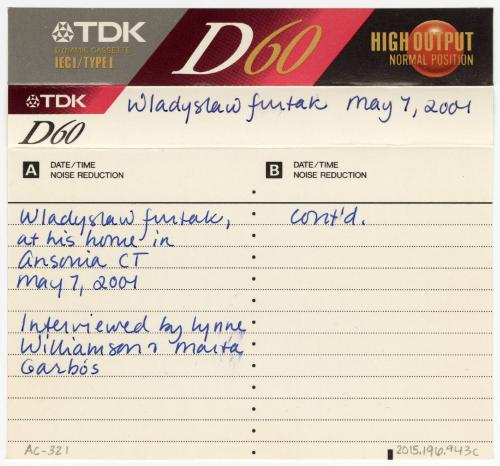 TDK
DYNAMIC CASSETTE
IEC I / TYPE I
D60
HIGH OUTPUT
NORMAL POSITION
TDK
Wladyslaw Furtak May 7, 2001
D60
A DATE/TIME
NOISE REDUCTION
B DATE/TIME
NOISE REDUCTION
Wladyslaw Furtak,
at his home in
Ansonia CT
May 7, 2001
Interviewed by Lynne
Williamson & Marta
Garbós
cont'd.
AC-321
2015.196.943c